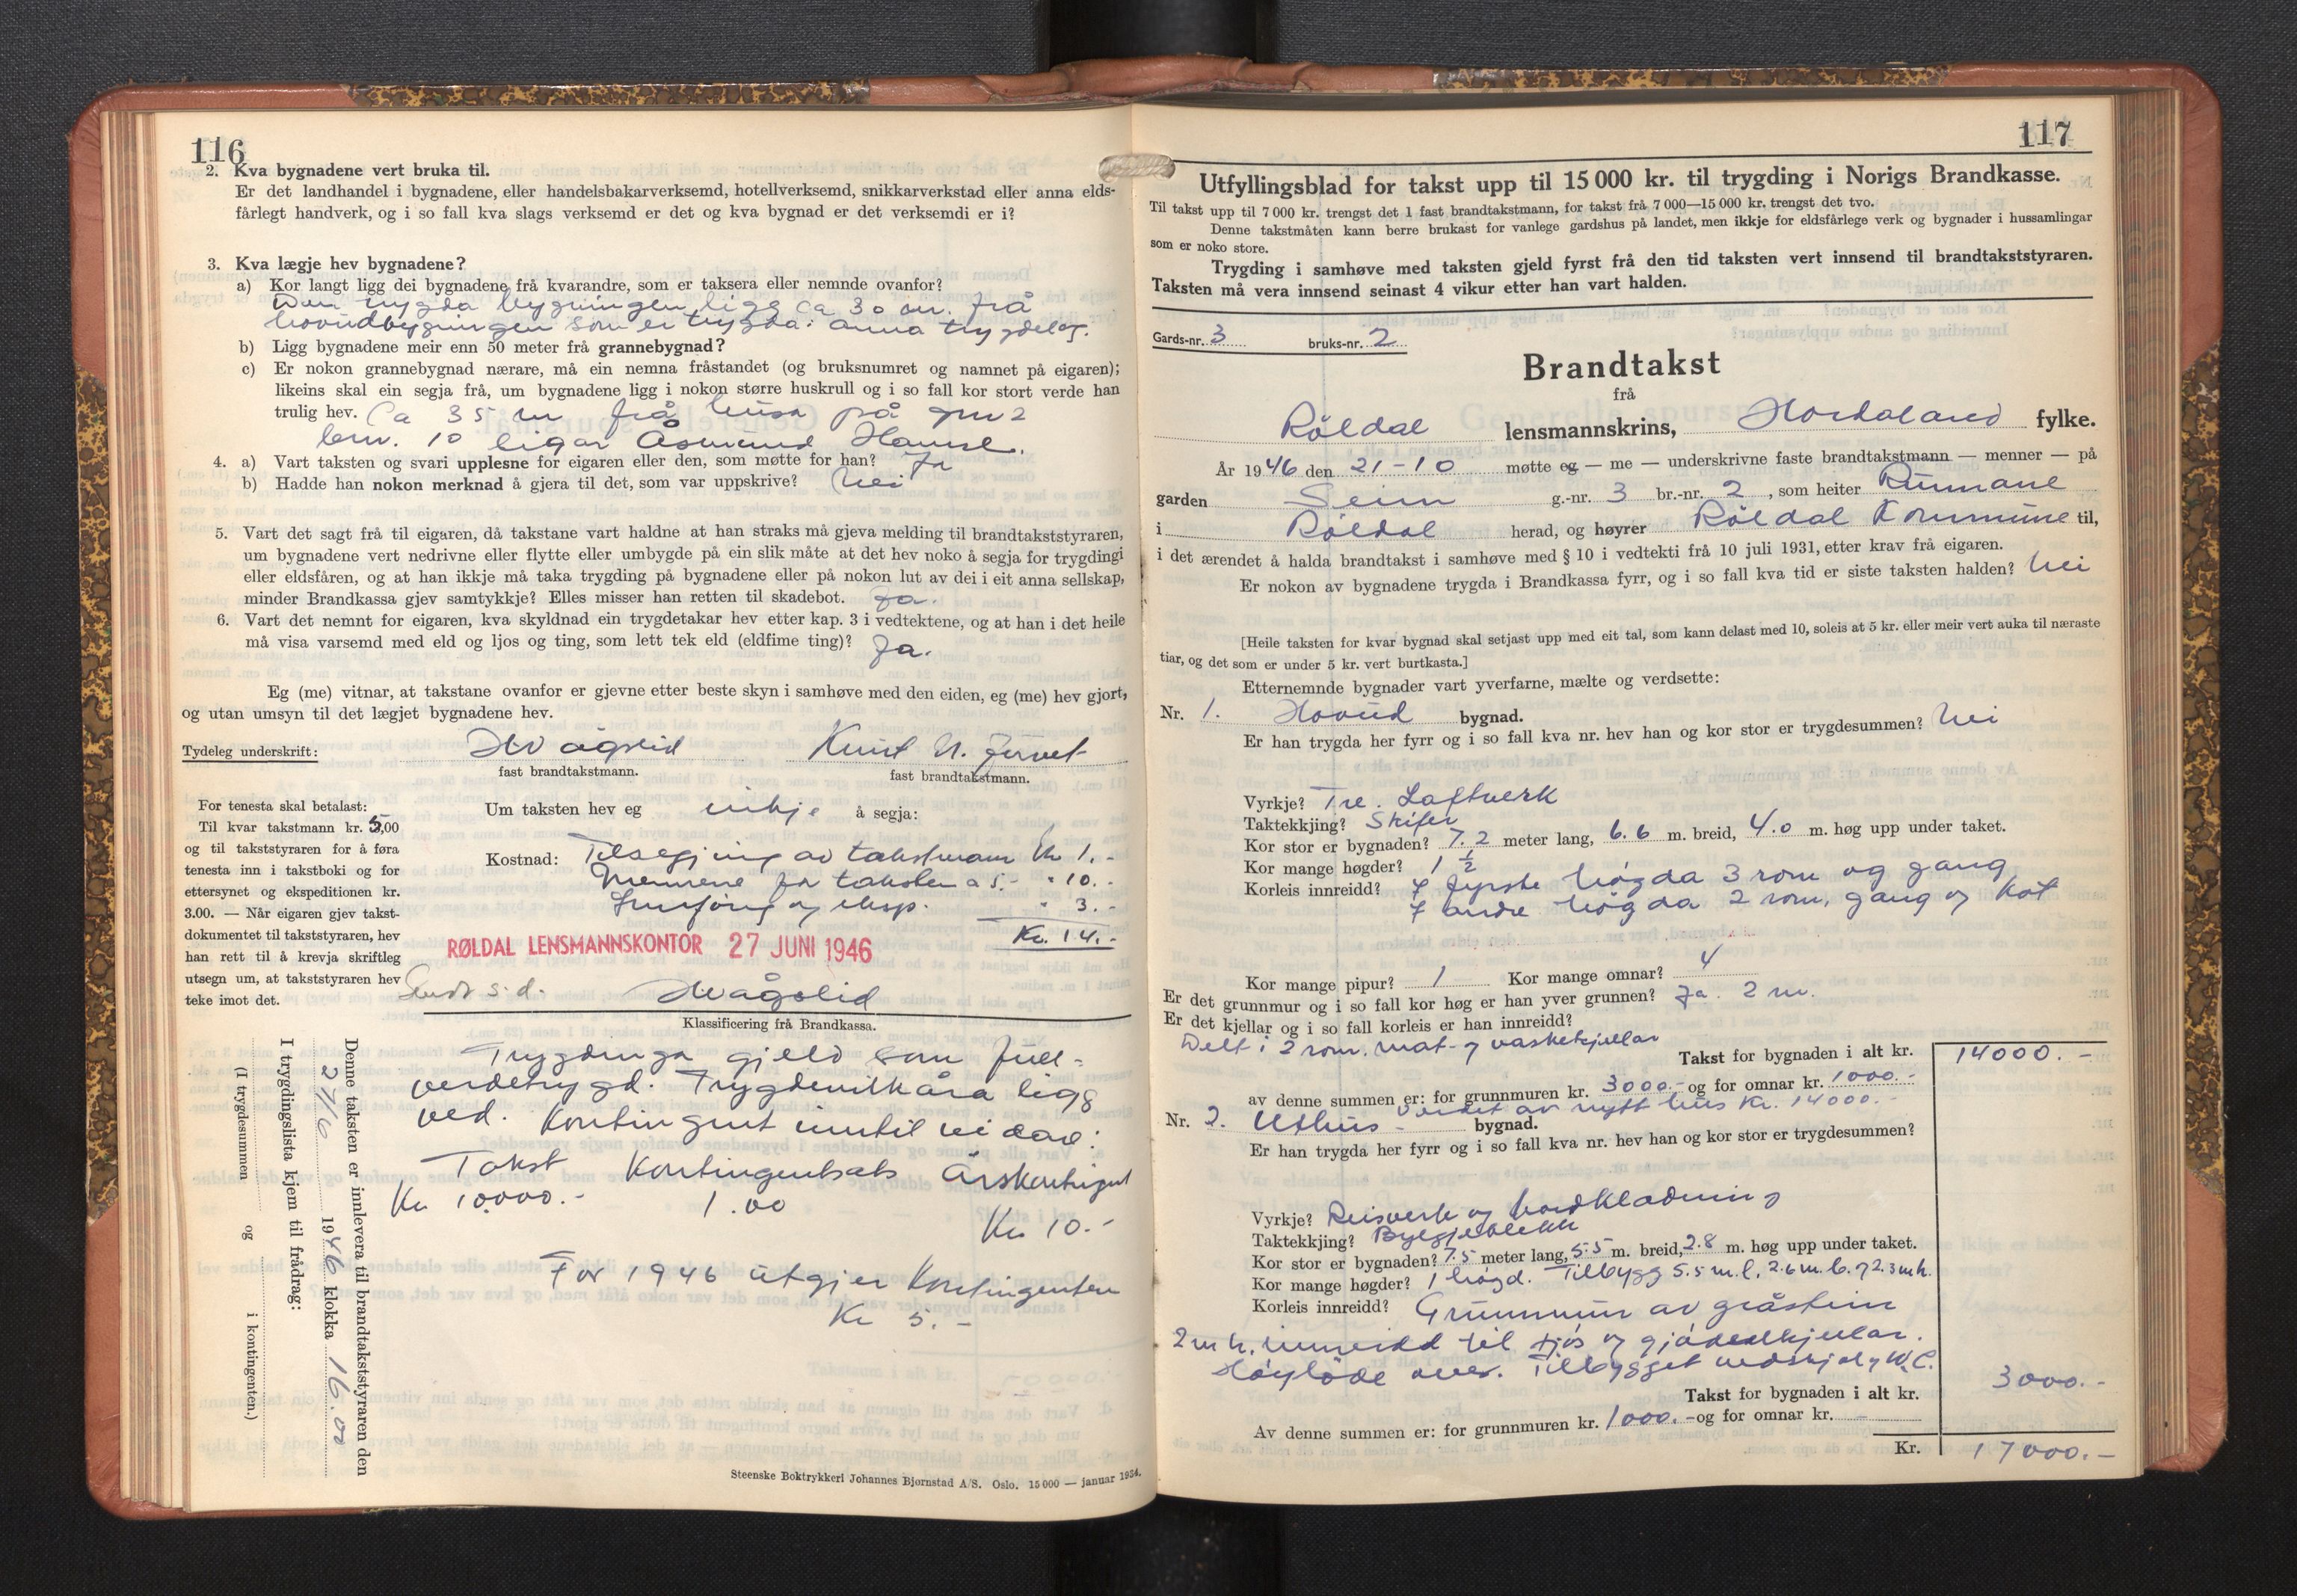 116
2. Kva bygnadene vert bruka til.
Er det landhandel i bygnadene, eller handelsbakarverksemd, hotellverksemd, snikkarverkstad eller anna elds-
fårlegt handverk, og i so fall kva slags verksemd er det og kva bygnad er det verksemdi er i?
3. Kva lægje hev bygnadene?
a) Kor langt ligg dei bygnadene frå kvarandre, som er taksera eller nemnde ovanfor?
Den trygda bygningen ligg ca 30 m. frå
hovudbygningen som er trygda i anna trygdelag.
b) Ligg bygnadene meir enn 50 meter frå grannebygnad?
c) Er nokon grannebygnad nærare, må ein nemna fråstandet (og bruksnumret og namnet på eigaren);
likeins skal ein segja frå, um bygnadene ligg i nokon større huskrull og i so fall kor stort verde han
trulig hev. Ca 35 m frå husa på gnr 2
bnr. 10 eigar Åsmund Hamre.
4. a) Vart taksten og svari upplesne for eigaren eller den, som møtte for han? Ja
b) Hadde han nokon merknad å gjera til det, som var uppskrive? Nei
5. Vart det sagt frå til eigaren, då takstane vart haldne at han straks må gjeva melding til brandtakststyraren,
um bygnadene vert nedrivne eller flytte eller umbygde på ein slik måte at det hev noko å segja for trygdingi
eller eldsfåren, og at han ikkje må taka trygding på bygnadene eller på nokon lut av dei i eit anna sellskap,
minder Brandkassa gjev samtykkje? Elles misser han retten til skadebot. Ja.
6. Vart det nemnt for eigaren, kva skyldnad ein trygdetakar hev etter kap. 3 i vedtektene, og at han i det heile
må visa varsemd med eld og ljos og ting, som lett tek eld (eldfime ting)? Ja.
Eg (me) vitnar, at takstane ovanfor er gjevne etter beste skyn i samhøve med den eiden, eg (me) hev gjort,
og utan umsyn til det lægjet bygnadene hev.
Tydeleg underskrift: Hvågslid Knut N. Juvet
fast brandtakstmann. fast brandtakstmann.
For tenesta skal betalast:
Til kvar takstmann kr. 5,00
og til takststyraren for å føra
tenesta inn i takstboki og for
ettersynet og ekspeditionen kr.
3.00. — Når eigaren gjev takst-
dokumentet til takststyraren, hev
han rett til å krevja skriftleg
utsegn um, at takststyraren hev
teke imot det.
Um taksten hev eg inkje å segja:
Kostnad: Tilsegjing av takstmann Kr 1.-
Mennene for taksten a 5.- " 10.-
Innføring og eksp. " 3.-
Kr. 14.-
RØLDAL LENSMANNSKONTOR 27 JUNI 1946
Sendt s.d. Hvågslid
Klassificering frå Brandkassa.
Trygdinga gjeld som full-
verdetrygd. Trygdevilkåra ligg
ved. Kontingent inntil vidare:
Takst Kontingentsats Årskontingent
Kr 10.000.- 1.00 Kr 10.-
For 1946 utgjer kontingenten
Kr 5.-
Denne taksten er innlevera til brandtakststyraren den
27/6 1946 klokka 16.00
I trygdingslista kjem til frådrag:
(I trygdesummen og i kontingenten.)
Steenske Boktrykkeri Johannes Bjørnstad A/S. Oslo. 15 000 — januar 1934.
117
Utfyllingsblad for takst upp til 15 000 kr. til trygding i Norigs Brandkasse.
Til takst upp til 7 000 kr. trengst det 1 fast brandtakstmann, for takst frå 7 000—15 000 kr. trengst det tvo.
Denne takstmåten kann berre brukast for vanlege gardshus på landet, men ikkje for eldsfårlege verk og bygnader i hussamlingar
som er noko store.
Trygding i samhøve med taksten gjeld fyrst frå den tid taksten vert innsend til brandtakststyraren.
Taksten må vera innsend seinast 4 vikur etter han vart halden.
Gards-nr. 3 bruks-nr. 2
Brandtakst
frå
Röldal lensmannskrins, Hordaland fylke.
År 1946 den 21-10 møtte eg — me — underskrivne faste brandtakstmann — menner — på
garden Seim g.-nr. 3 br.-nr. 2, som heiter
i Röldal herad, og høyrer Röldal Kommune til,
i det ærendet å halda brandtakst i samhøve med § 10 i vedtekti frå 10 juli 1931, etter krav frå eigaren.
Er nokon av bygnadene trygda i Brandkassa fyrr, og i so fall kva tid er siste taksten halden? Nei
[Heile taksten for kvar bygnad skal setjast upp med eit tal, som kann delast med 10, soleis at 5 kr. eller meir vert auka til næraste
tiar, og det som er under 5 kr. vert burtkasta.]
Etternemnde bygnader vart yverfarne, mælte og verdsette:
Nr. 1. Hovud bygnad.
Er han trygda her fyrr og i so fall kva nr. hev han og kor stor er trygdesummen? Nei
Vyrkje? Tre. Laftverk
Taktekkjing? Skifer
Kor stor er bygnaden? 7.2 meter lang, 6.6 m. breid, 4.0 m. høg upp under taket.
Kor mange høgder? 1 1/2
Korleis innreidd? I fyrste högda 3 rom og gang
I andre högda 2 rom, gang og kot
Kor mange pipur? 1 Kor mange omnar? 4
Er det grunnmur og i so fall kor høg er han yver grunnen? Ja. 2 m.
Er det kjellar og i so fall korleis er han innreidd?
Delt i 2 rom. mat- og vaskekjellar
Takst for bygnaden i alt kr. 14000.-
av denne summen er: for grunnmuren kr. 3000.- og for omnar kr. 1000.-
Verdet av nytt hus kr. 14000.-
Nr. 2. Uthus- bygnad.
Er han trygda her fyrr og i so fall kva nr. hev han og kor stor er trygdesummen?
Vyrkje? Reisverk og bordkladning
Taktekkjing? Bylgjeblekk
Kor stor er bygnaden? 7.5 meter lang, 5.5 m. breid, 2.8 m. høg upp under taket.
Kor mange høgder? 1 högd. Tilbygg 5.5 m. l. 2.6 m. b. og 2.3 m h.
Korleis innreidd? Grunnmur av gråstein
2 m h. innreidd til fjös og gjödselkjellar.
Höyløde over. Tilbygget vedskjol og W.C.
Takst for bygnaden i alt kr. 3000.-
Av denne summen er: for grunnmuren kr. 1000.- og for omnar kr. -
Kr. 17000.-